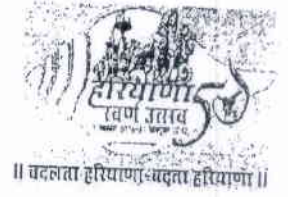 हरियाणा 50
स्वर्ण उत्सव
|| बदलता हरियाणा-बढ़ता हरियाणा ||